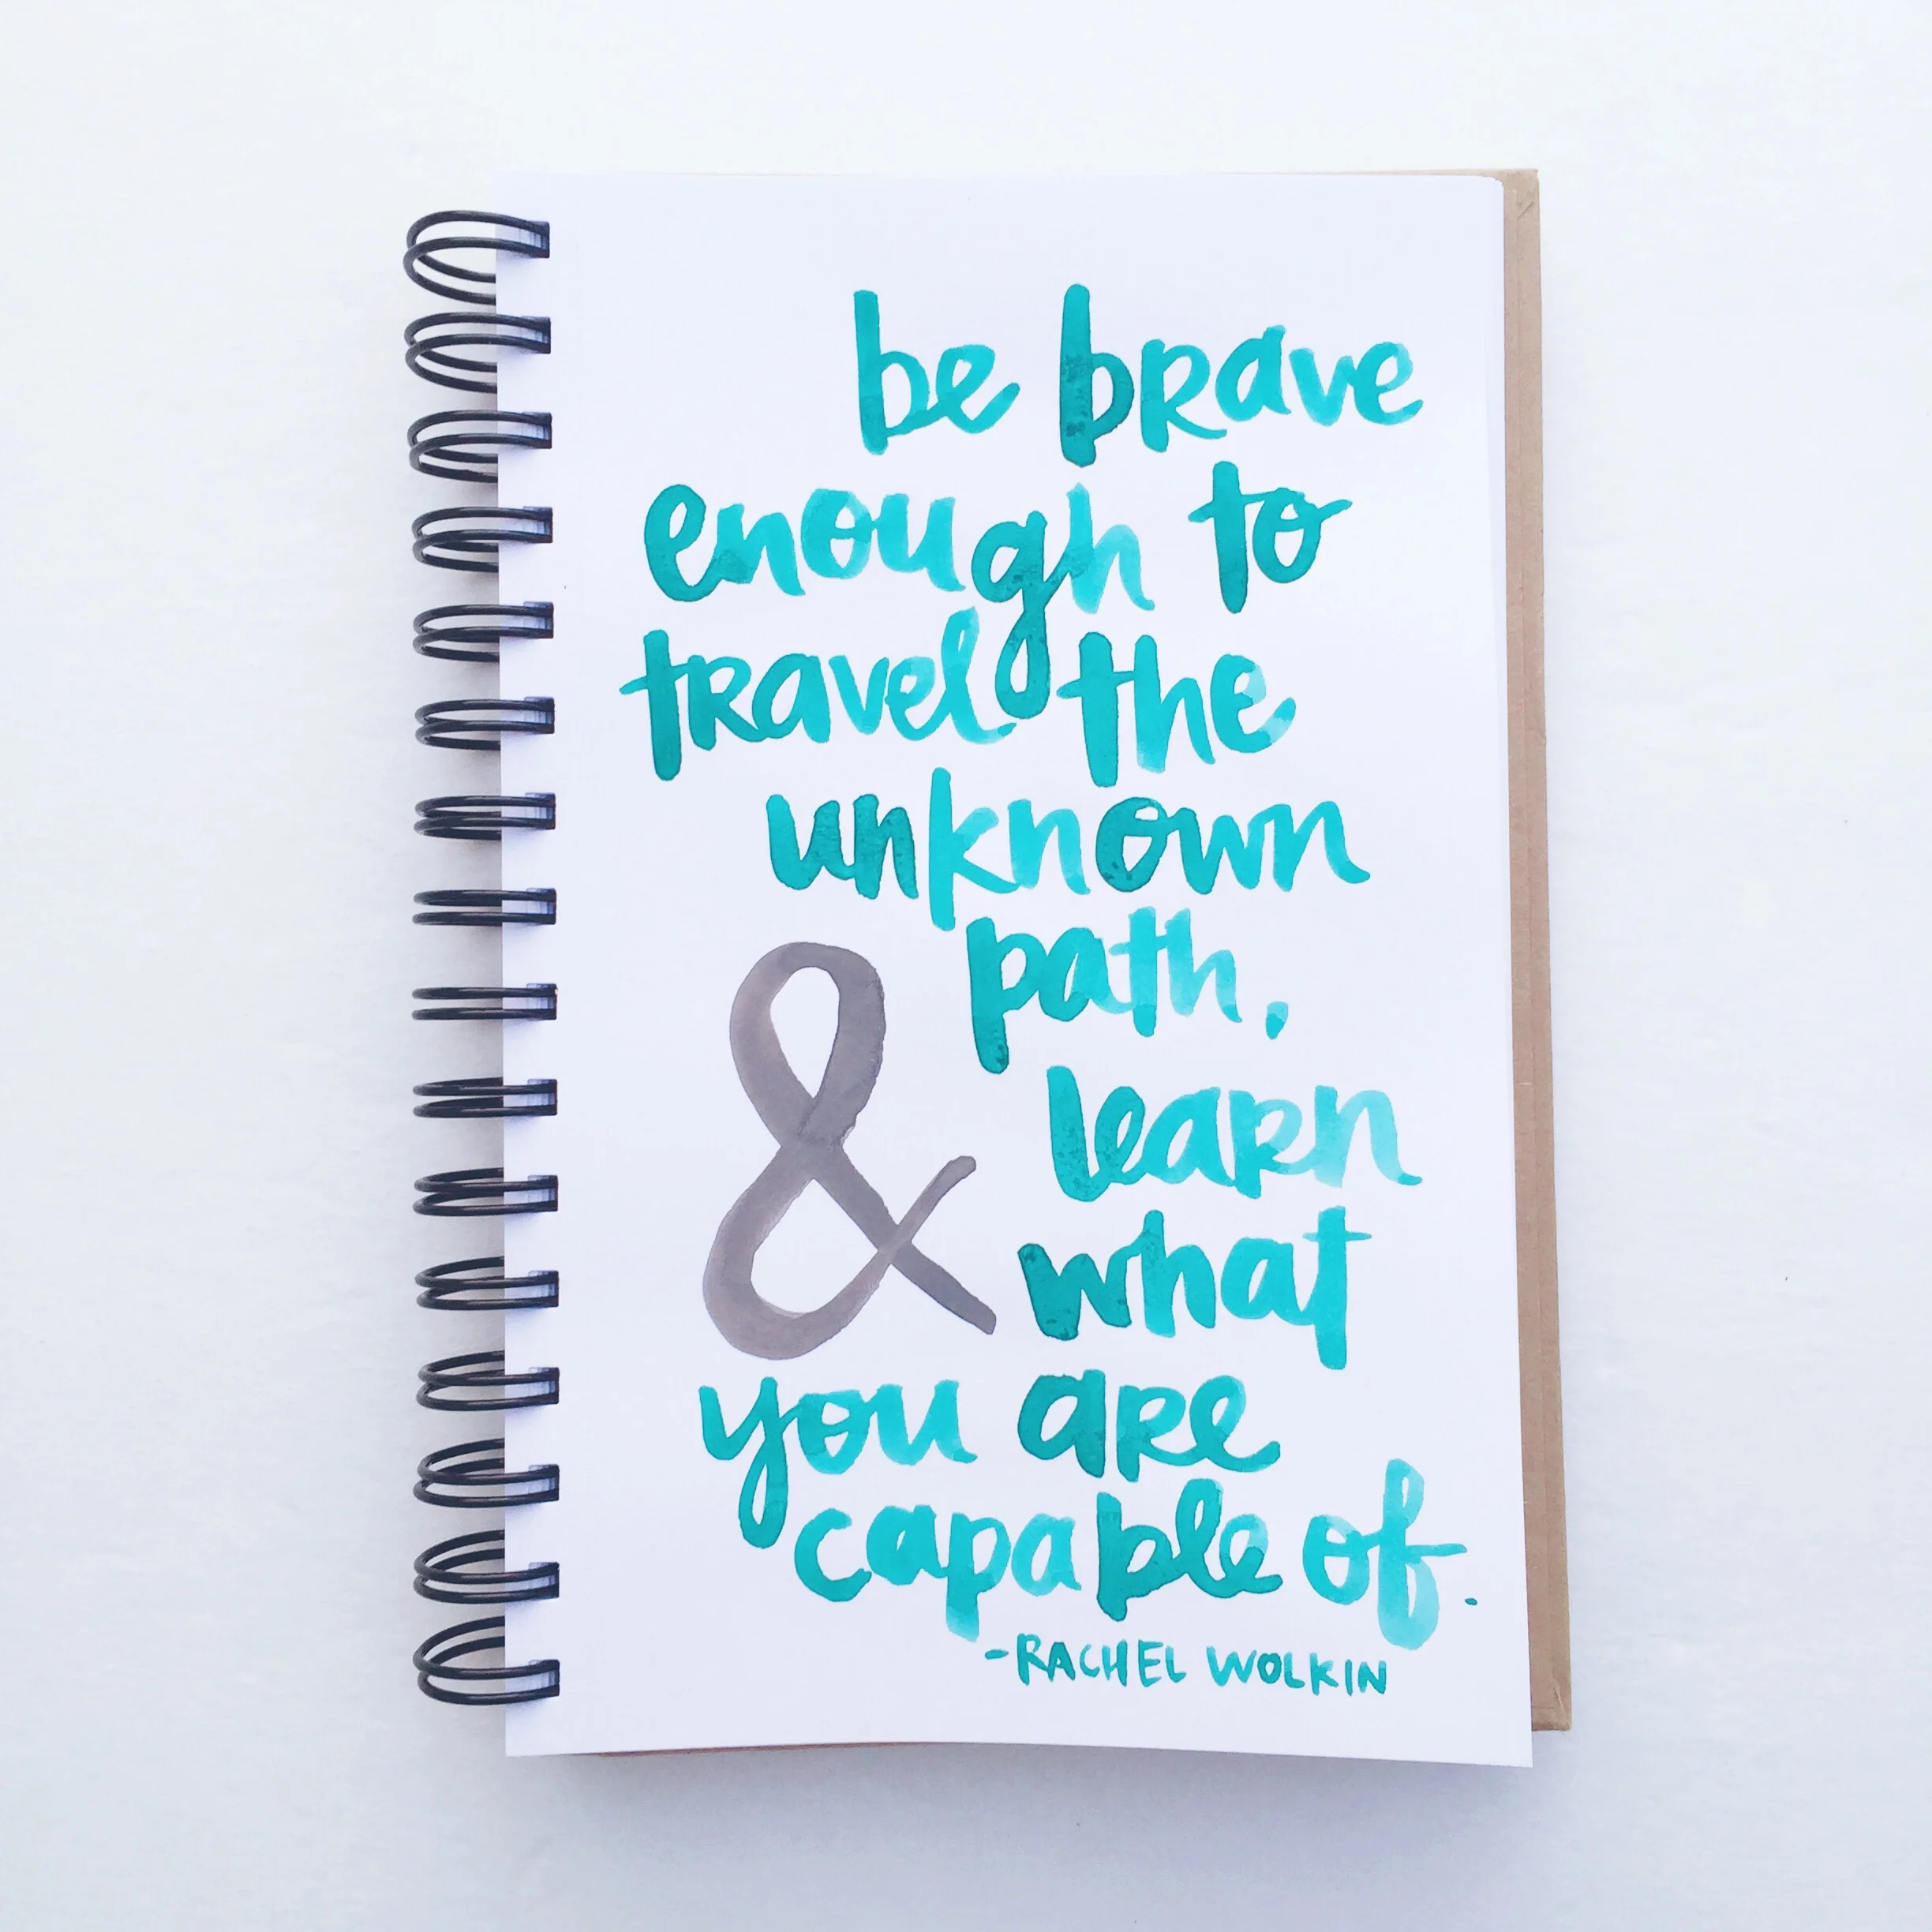 be brave
enough to
travel the
unknown
path,
& learn
what
you are
capable of.
-RACHEL WOLKIN